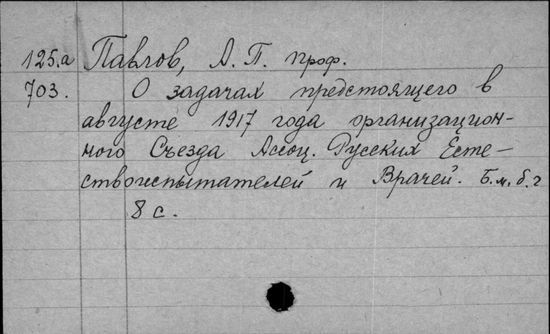 125.а Павлов, А. П. проф.
703. О задачах предстоящего в
августе 1917 года организацион-
ного Съезда Ассоц. Русских Есте-
ствоиспытателей и Врачей. Б.м.б.г
8 с.